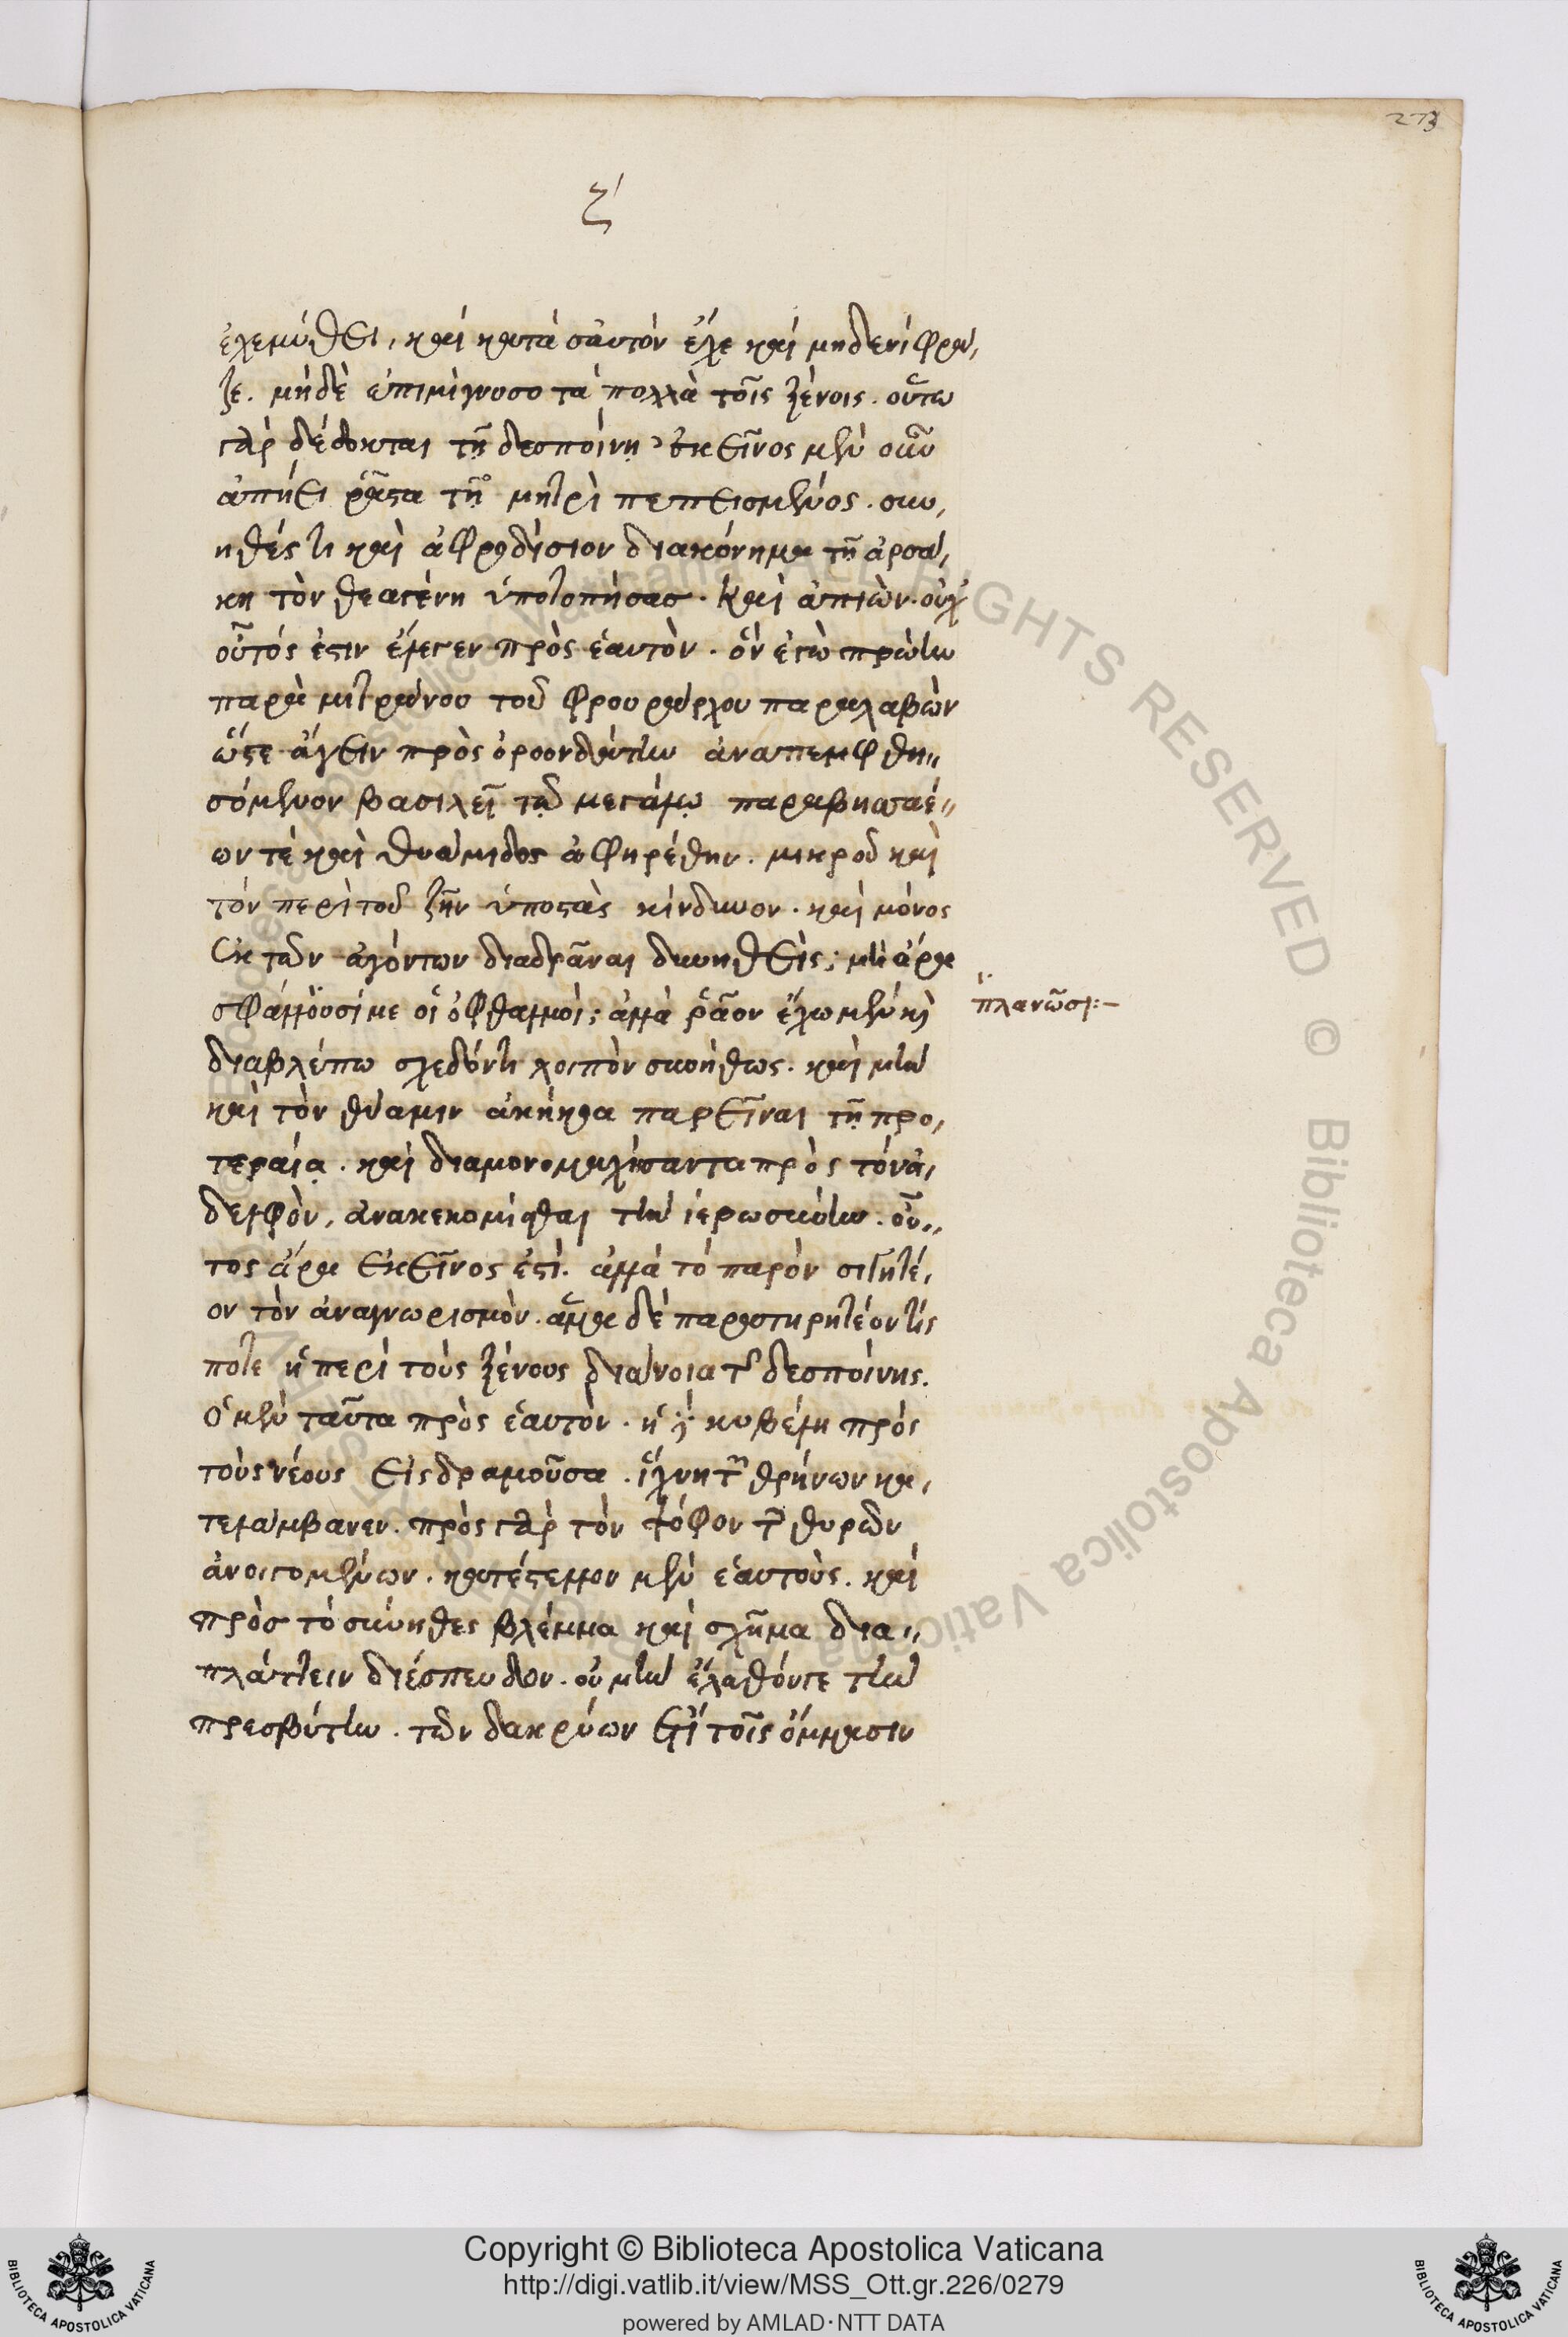 273
ζ′
ἐχεμύθει, καὶ κατὰ σαυτὸν ἔχε καὶ μηδενὶ φρά,
ζε. μηδὲ ἐπιμίγνυσο τὰ πολλὰ τοῖς ξένοις. οὕτω
γὰρ δέδοκται τῇ δεσποίνῃ, ἐκεῖνος μὲν οὖν
ἀπῄει ῥᾷστα τῇ μητρὶ πεπεισμένος. συν,
ηθές τι καὶ ἀφροδίσιον διακόνημα τῇ ἀρσά,
κη τὸν θεαγένη ὑποτοπήσας. καὶ ἀπιὼν. οὐχ
οὗτός ἐστιν ἔλεγεν πρὸς ἑαυτὸν. ὃν ἐγὼ πρώην
παρὰ μιτράνου τοῦ φρουράρχου παραλαβὼν
ὥστε ἄγειν πρὸς ὀροονδάτην ἀναπεμφθη,,
σόμενον βασιλεῖ τῷ μεγάλῳ παρὰ βησσαέ,,
ων τὲ καὶ θυάμιδος ἀφῃρέθην. μικροῦ καὶ
τὸν περὶ τοῦ ζῆν ὑποστὰς κίνδυνον. καὶ μόνος
ἐκ τῶν ἀγόντων διαδρᾶναι δυνηθεὶς; μὴ ἄρα
σφάλλουσί με οἱ ὀφθαλμοί; ἀλλὰ ῥᾷον ἔχω μὲν κὶ
διαβλέπω σχεδόν τι λοιπὸν συνήθως. καὶ μὴν
καὶ τὸν θύαμιν ἀκήκοα παρεῖναι τῇ προ,
τεραίᾳ. καὶ διαμονομαχήσαντα πρὸς τὸν ἀ,
δελφὸν, ἀνακεκομίσθαι τὴν ἱερωσύνην. οὗ,,
τος ἄρα ἐκεῖνος ἐστί. ἀλλὰ τὸ παρὸν σιγητέ,
ον τὸν ἀναγνωρισμὸν. ἅμα δὲ παρατηρητέον τίς
ποτε ἡ περὶ τοὺς ξένους διάνοια τῆς δεσποίνης.
ὁ μὲν ταῦτα πρὸς ἑαυτὸν. ἡ δὲ κυβέλη πρὸς
τοὺς νέους εἰσδραμοῦσα. ἴχνη τῶν θρήνων κα,
τελάμβανεν. πρὸς γὰρ τὸν ψόφον τῶν θυρῶν
ἀνοιγομένων. κατέστελλον μὲν ἑαυτοὺς. καὶ
πρὸσ τὸ σύνηθες βλέμμα καὶ σχῆμα δια,,
πλάττειν διέσπευδον. οὐ μὴν ἔλαθόν γε τὴν
πρεσβύτην. τῶν δακρύων ἔτι τοῖς ὄμμασιν
πλανῶσι:–
Biblioteca Apostolica Vaticana ALL RIGHTS RESERVED © Biblioteca Apostolica Vaticana
Copyright © Biblioteca Apostolica Vaticana
http://digi.vatlib.it/view/MSS_Ott.gr.226/0279
powered by AMLAD·NTT DATA
BIBLIOTECA APOSTOLICA VATICANA
BIBLIOTECA APOSTOLICA VATICANA